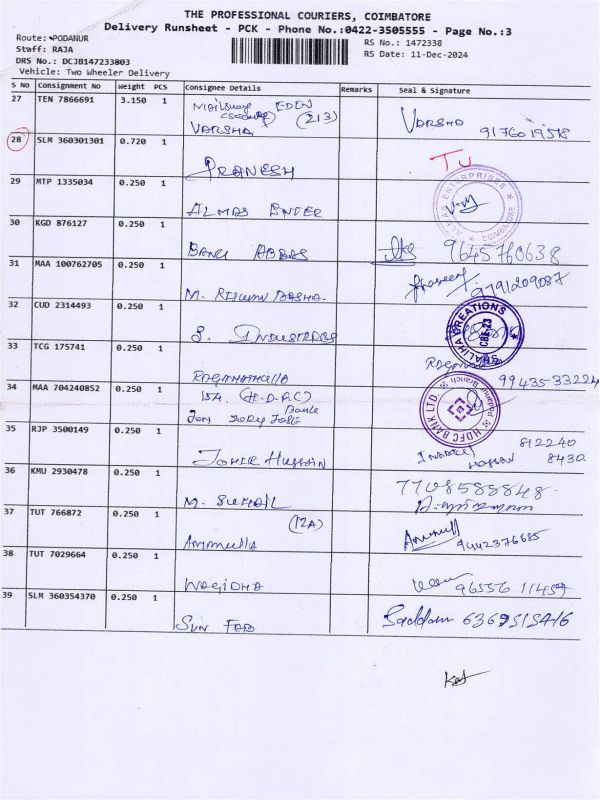 THE PROFESSIONAL COURIERS, COIMBATORE
Delivery Runsheet - PCK - Phone No.:0422-3505555 - Page No.:3
Route: PODANUR
Staff: RAJA
DRS No.: DCJB147233803
Vehicle: Two Wheeler Delivery
RS No.: 1472338
RS Date: 11-Dec-2024
S No Consignment No Weight PCS Consignee Details Remarks Seal & Signature
27 TEN 7866691 3.150 1 EDEN (213)
VARSHA Varsha
28 SLM 360301301 0.720 1 PRANESH
29 MTP 1335034 0.250 1 ALMAS ENTER
ALMAS ENTERPRISES COIMBATORE
30 KGD 876127 0.250 1 9645760638
31 MAA 100762705 0.250 1 9791209087
32 CUD 2314493 0.250 1 S. INDUSTRIES
SHALIHA CREATIONS CBE-23
33 TCG 175741 0.250 1 99435-33224
34 MAA 704240852 0.250 1 H.D.F.C Bank
HDFC BANK LTD. Podanur Branch
35 RJP 3500149 0.250 1 812240
8430
36 KMU 2930478 0.250 1 M. SUHAIL 7708588848
37 TUT 766872 0.250 1 (12A)
9442376685
38 TUT 7029664 0.250 1 WAGIDHA 96556 11457
39 SLM 360354370 0.250 1 SUN FAB Saddam 6369515416